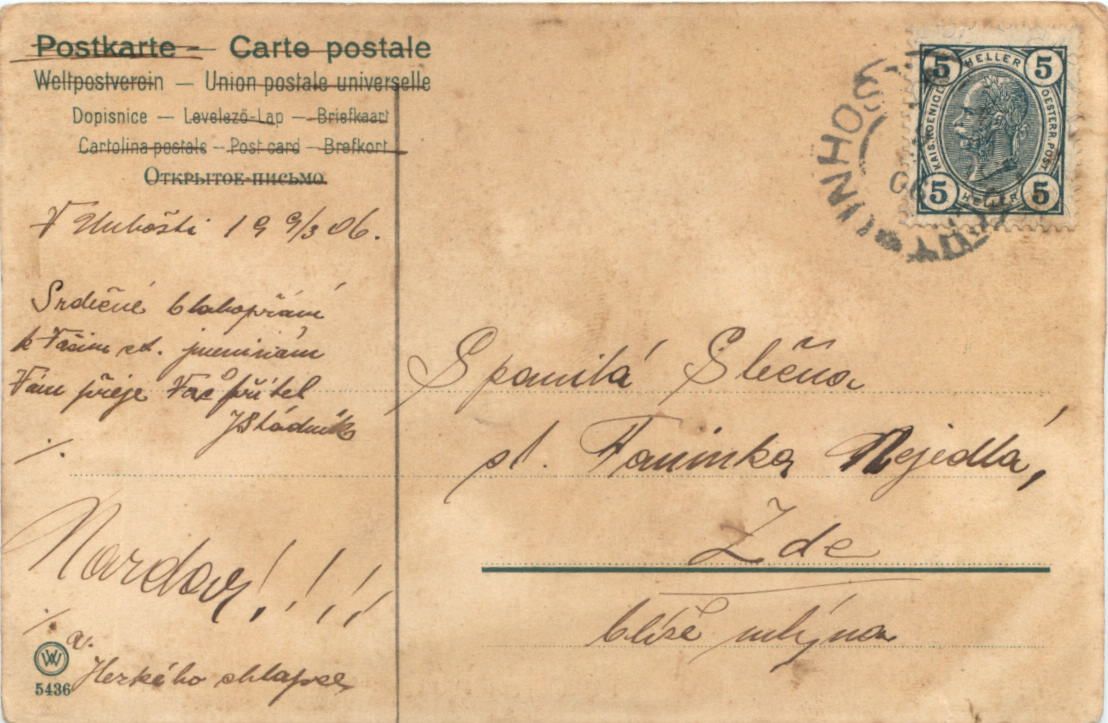 Postkarte — Carte postale
Weltpostverein — Union postale universelle
Dopisnice — Levelező-Lap — Briefkaart
Cartolina postale — Post card — Brefkort
Открытое письмо
V 19 9/3 06.
Srdečné blahopřání
k Vašim sl. jmeninám
Vám přeje Váš přítel
JStádník
./.
Nazdar!!!!
./.
a.
Hezkého chlapce
W
5436
5 HELLER 5
KAIS. KOENIGL. OESTERR. POST
5 HELLER 5
UNHOŠ
Spanilá Slečna
sl. Faninka Nejedlá,
Zde
blíže mlýna